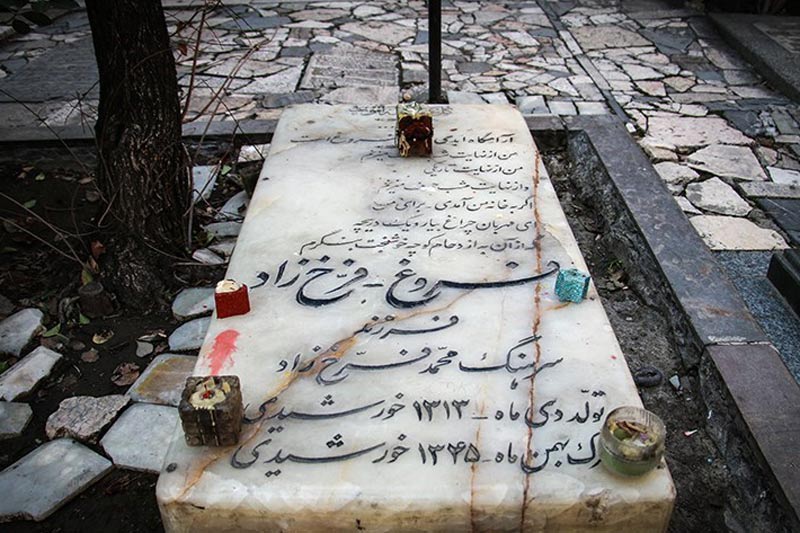 آرامگاه ابدی
من از نهایت
من از نهایت تاریکی
و از نهایت شب حرف میزنم
اگر به خانه من آمدی برای من
ای مهربان چراغ بیار و یک دریچه
که از آن به ازدحام کوچه خوشبخت بنگرم
فروغ ـ فرّخ زاد
فرزند
سرهنگ محمّد فرّخ زاد
تولد دی ماه ـ ۱۳۱۳ خورشیدی
بهمن ماه ـ ۱۳۴۵ خورشیدی